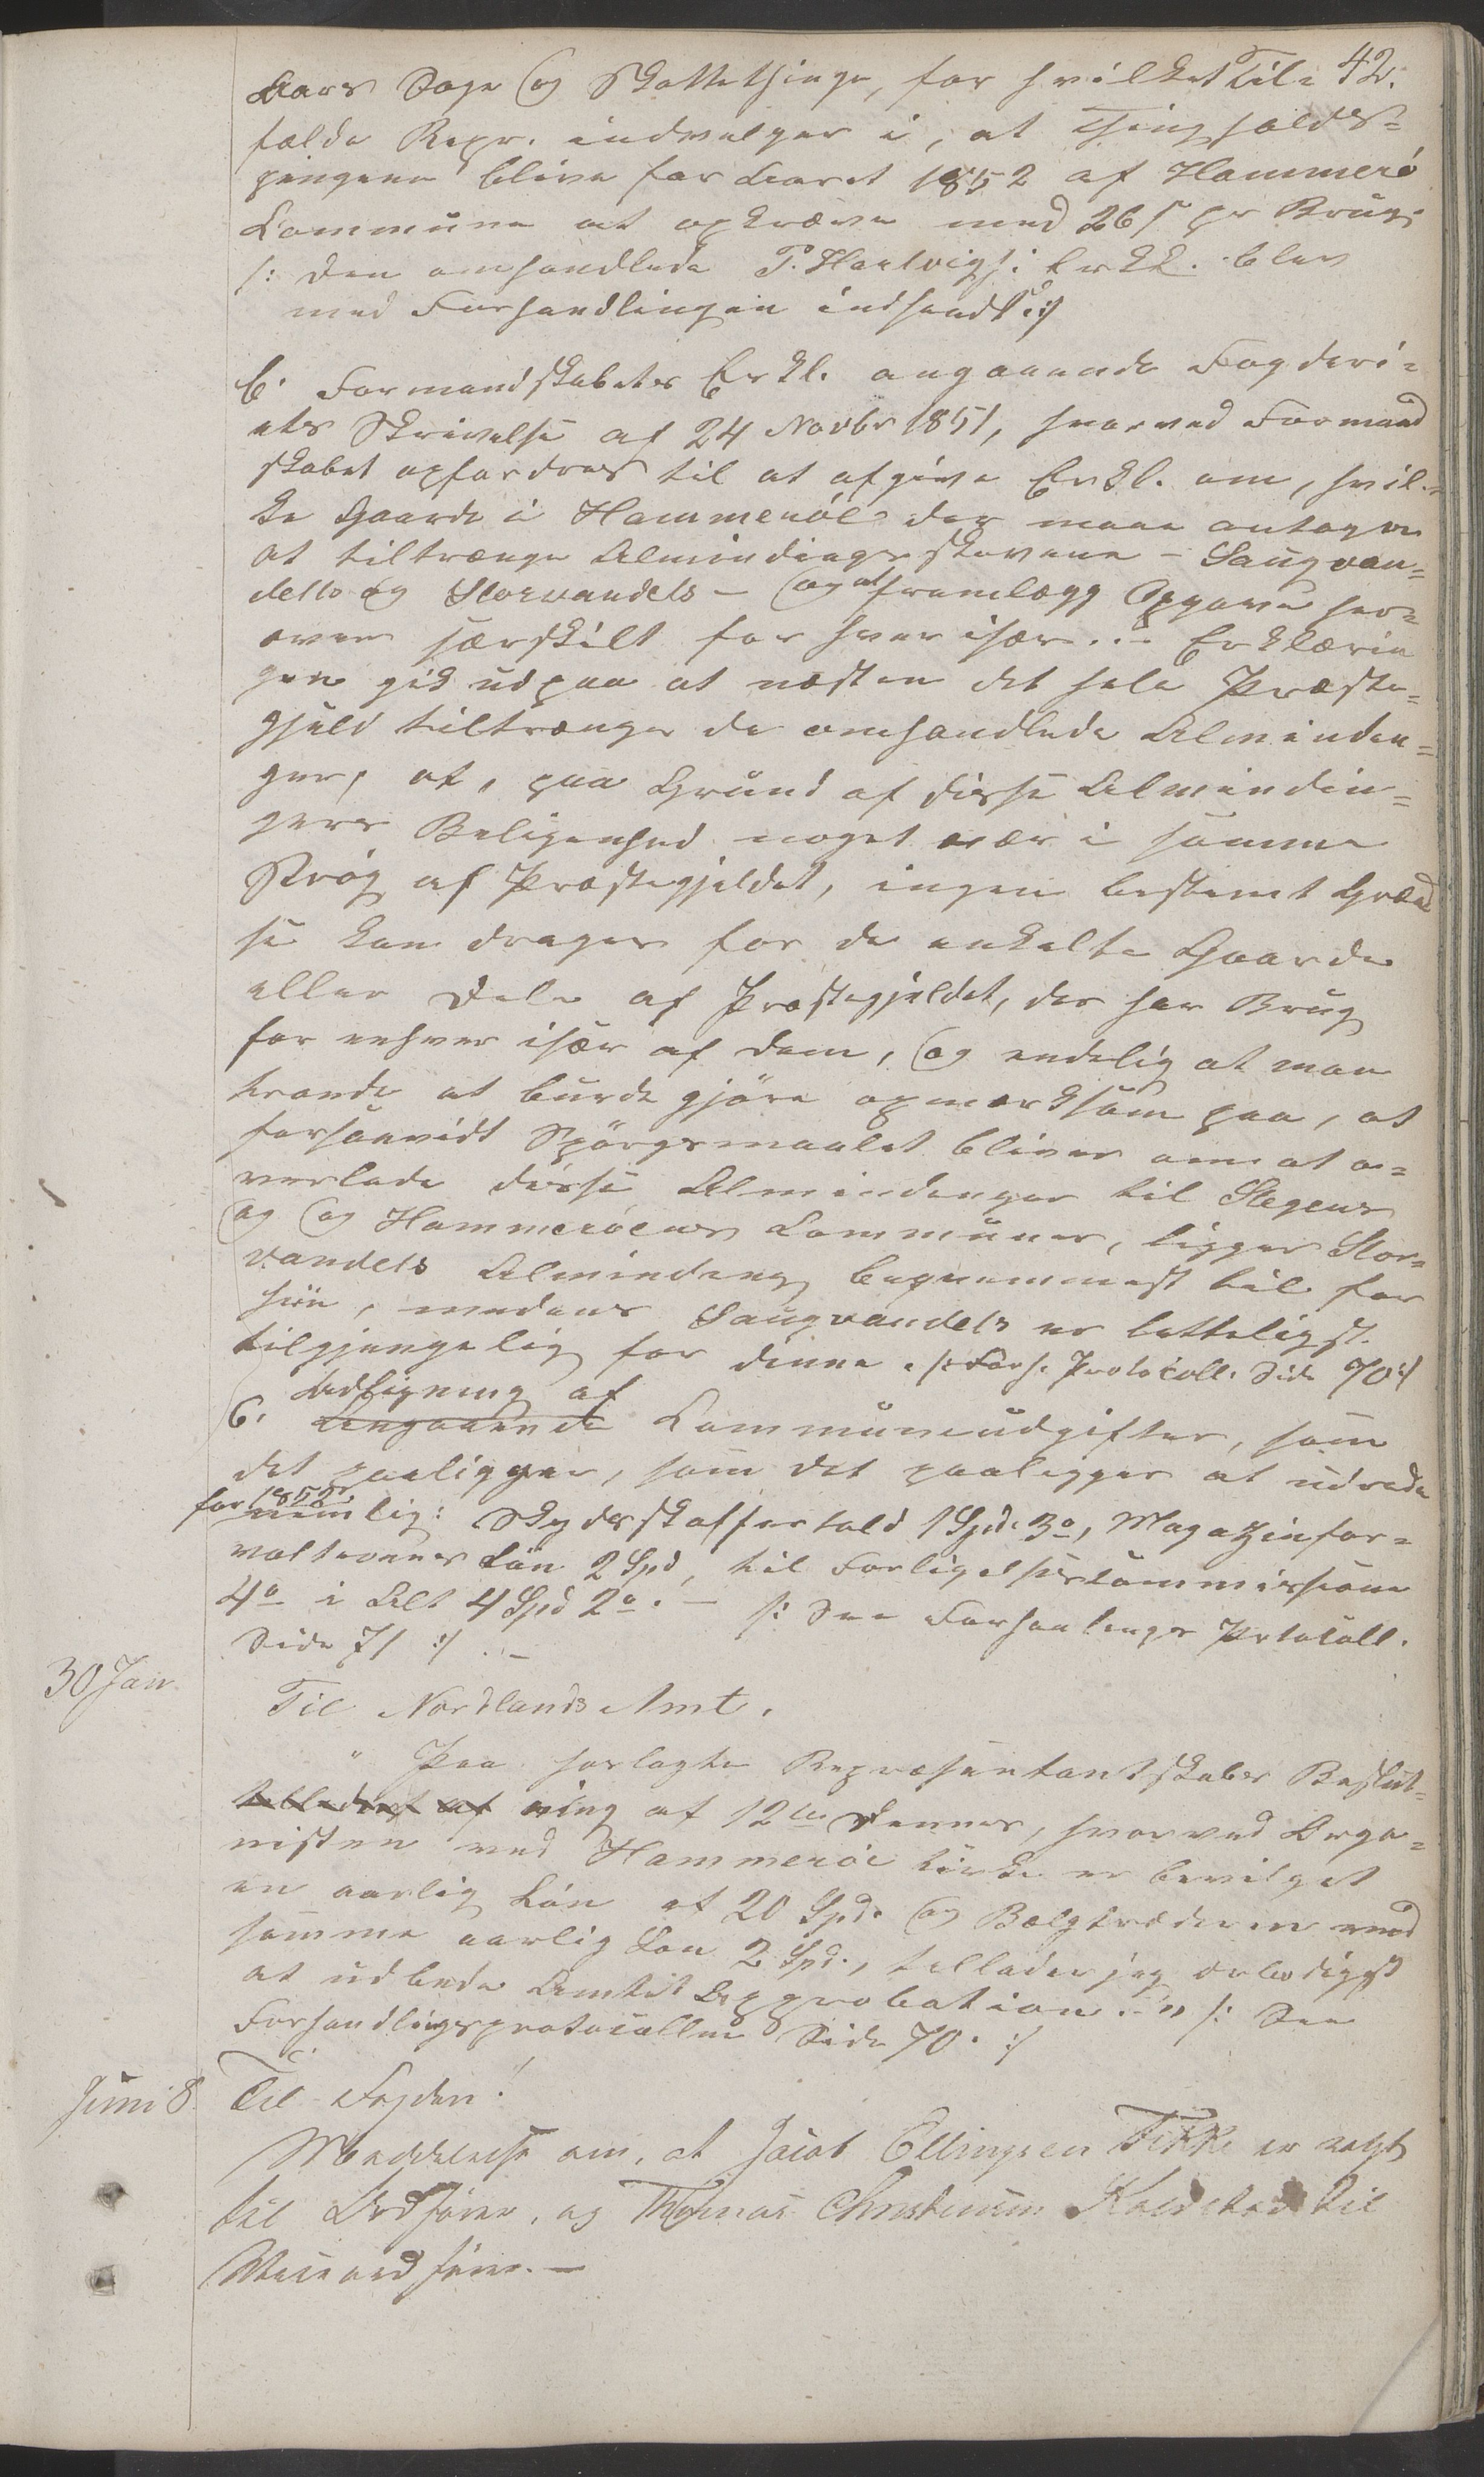 42.
Aars Sage og Skattethinge, for hvilket Til=
fælde Repr. indvilger i, at Thingholds=
pengene blive for Aaret 1852 af Hammerö
Commune at opkræve med 26 s pr Brug.
/: den omhandlede P. Hartvigs: Erkl. blev
med Forhandlingen indsendt :/
b. Formandskabets Erkl. angaaende Fogderi=
ets Skrivelse af 24 Novbr 1851, hvorved Formand
skabet opfordres til at afgive Erkl. om, hvil=
ke Gaarde i Hammeröe der maae antages
at tiltrænge Almindingsskovene – Saugvan=
dets og Storvandets – og at fremlægge Opgave her=
over særskilt for hver især. – Erklærin
gen gik ud paa at næsten det hele Præste=
gjeld tiltrænger de omhandlede Alminden=
ger, at, paa Grund af disse Almindin=
gers Beligenhed noget nær i samme
Strög af Præstegjeldet, ingen bestemt Græd
se kan drages for de enkelte Gaarde
eller Dele af Præstegjeldet, der har Brug
for enhver især af dem, og endelig at man
troede at burde gjöre opmærksom paa, at
forsaavidt Spörgsmaalet bliver om at o=
verlade disse Almindenger til Stegens
og og Hammeröens Communer, ligger Stor=
vandets Alminding beqvemmest til for
hiin, medens Saugvandets er letteligst
tilgjengelig for denne. /: Forh. Protocoll. Side 70 :/
Udligning af
C. Angaaende Communeudgifter, som
det paaligger, som det paaligger at udrede
for 1852
nemlig: Skydsskafferhold 1 Spd. 3 o, Magazinfor=
valterens Lön 2 Spd, til Forligelsescommissionen
4 o i Alt 4 Spd 2 o. – /: See Forhanlings Prtocoll.
Side 71 :/ . –
30 Jan.
Til Nordlands Amt.
" Paa forlagte Repræsentantskabs Beslut=
tillades af ning af 12te dennes, hvorved Orga=
nisten ved Hammeröe Kirke er bevilget
en aarlig Lön af 20 Spd. og Bælgtræderen ved
samme aarlig Lön 2 Spd., tillader jeg ærbødigst
at udbede Amtets Approbation. –" /: See
Forhandlingsprotocollen Side 70. :/
Juni 8
Til Fogden!
Meddelelse om, at Jacob Ellingsen er valgt
til Ordförer, og Thomas Christensen til
Viceordförer. –